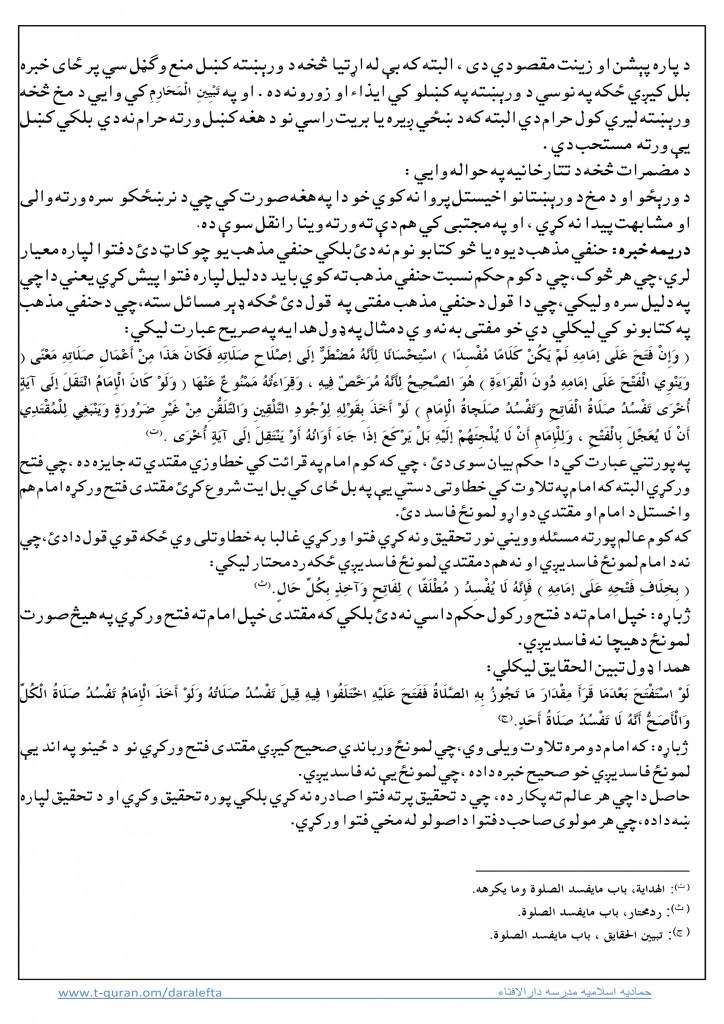 د پاره پېشن او زينت مقصودي دی ، البته که بې له اړتيا څخه د ورېښته کښل منع وګڼل سي پر ځای خبره
بلل کيږي ځکه په نوسي د ورېښته په کښلو کي ايذاء او زورونه ده . او په تَبْيِينِ الْمَحَارِمِ کي وايي د مخ څخه
ورېښته ليري کول حرام دي البته که د ښځي ږيره يا بريت راسي نو د هغه کښل ورته حرام نه دي بلکي کښل
يې ورته مستحب دي .
د مضمرات څخه د تتارخانيه په حواله وايي :
د ورېځو او د مخ د ورېښتانو اخيستل پروا نه کوي خو دا په هغه صورت کي چي د نرښځکو سره ورته والی
او مشابهت پيدا نه کړي ، او په مجتبی کي هم دې ته ورته وينا را نقل سوې ده.
دريمه خبره: حنفي مذهب د يوه يا څو کتابو نوم نه دئ بلکي حنفي مذهب يو چوکاټ دئ د فتوا لپاره معيار
لري، چي هر څوک، چي د کوم حکم نسبت حنفي مذهب ته کوي بايد د دليل لپاره فتوا پيش کړي يعني دا چي
په دليل سره وليکي، چي دا قول د حنفي مذهب مفتی په قول دئ ځکه ډېر مسائل سته، چي د حنفي مذهب
په کتابونو کي ليکلي دي خو مفتی به نه وي د مثال په ډول هدايه په صريح عبارت ليکي:
( وَإِنْ فَتَحَ عَلَى إمَامِهِ لَمْ يَكُنْ كَلَامًا مُفْسِدًا ) اسْتِحْسَانًا لِأَنَّهُ مُضْطَرٌّ إلَى إصْلَاحِ صَلَاتِهِ فَكَانَ هَذَا مِنْ أَعْمَالِ صَلَاتِهِ مَعْنًى (
وَيَنْوِي الْفَتْحَ عَلَى إمَامِهِ دُونَ الْقِرَاءَةِ ) هُوَ الصَّحِيحُ لِأَنَّهُ مُرَخَّصٌ فِيهِ ، وَقِرَاءَتُهُ مَمْنُوعٌ عَنْهَا ( وَلَوْ كَانَ الْإِمَامُ انْتَقَلَ إلَى آيَةٍ
أُخْرَى تَفْسُدُ صَلَاةُ الْفَاتِحِ وَتَفْسُدُ صَلَجاةُ الْإِمَامِ ) لَوْ أَخَذَ بِقَوْلِهِ لِوُجُودِ التَّلْقِينِ وَالتَّلَقُّنِ مِنْ غَيْرِ ضَرُورَةٍ وَيَنْبَغِي لِلْمُقْتَدِي
أَنْ لَا يُعَجِّلَ بِالْفَتْحِ ، وَلِلْإِمَامِ أَنْ لَا يُلْجِئَهُمْ إلَيْهِ بَلْ يَرْكَعُ إذَا جَاءَ أَوَانُهُ أَوْ يَنْتَقِلُ إلَى آيَةٍ أُخْرَى .(ت)
په پورتني عبارت کي دا حکم بيان سوی دئ ، چي که کوم امام په قرائت کي خطا وزي مقتدي ته جايزه ده ، چي فتح
ورکړي البته که امام په تلاوت کي خطاوتی دستي يې په بل ځای کي بل ايت شروع کړئ مقتدی فتح ورکړه امام هم
واخستل د امام او مقتدي دواړو لمونځ فاسد دئ.
که کوم عالم پورته مسئله وويني نور تحقيق ونه کړي فتوا ورکړي غالبا به خطا وتلی وي ځکه قوي قول دا دئ، چي
نه د امام لمونځ فاسديږي او نه هم د مقتدي لمونځ فاسديږي ځکه رد محتار ليکي:
( بِخِلَافِ فَتْحِهِ عَلَى إمَامِهِ ) فَإِنَّهُ لَا يُفْسِدُ ( مُطْلَقًا ) لِفَاتِحٍ وَآخِذٍ بِكُلِّ حَالٍ.(ث)
ژباړه : خپل امام ته د فتح ورکول حکم داسي نه دئ بلکي که مقتدی خپل امام ته فتح ورکړي په هيڅ صورت
لمونځ د هيچا نه فاسديږي.
همدا ډول تبين الحقايق ليکلي :
لَوْ اسْتَفْتَحَ بَعْدَمَا قَرَأَ مِقْدَارَ مَا تَجُوزُ بِهِ الصَّلَاةُ فَفَتَحَ عَلَيْهِ اخْتَلَفُوا فِيهِ قِيلَ تَفْسُدُ صَلَاتُهُ وَلَوْ أَخَذَ الْإِمَامُ تَفْسُدُ صَلَاةُ الْكُلِّ
وَالْأَصَحُّ أَنَّهُ لَا تَفْسُدُ صَلَاةُ أَحَدٍ.(ج)
ژباړه : که امام دومره تلاوت ويلی وي، چي لمونځ ورباندي صحيح کيږي مقتدی فتح ورکړي نو د ځينو په اند يې
لمونځ فاسديږي خو صحيح خبره داده ، چي لمونځ يې نه فاسديږي.
حاصل دا چي هر عالم ته پکار ده، چي د تحقيق پرته فتوا صادره نه کړي بلکي پوره تحقيق وکړي او د تحقيق لپاره
ښه داده، چي هر مولوی صاحب د فتوا د اصولو له مخي فتوا ورکړي.
(ت): الهداية، باب مايفسد الصلوة وما يكرهه.
(ث): ردمحتار، باب مايفسد الصلوة.
(ج): تبيين الحقايق ، باب مايفسد الصلوة.
حماديه اسلاميه مدرسه دارالافتاء www.t-quran.om/daralefta